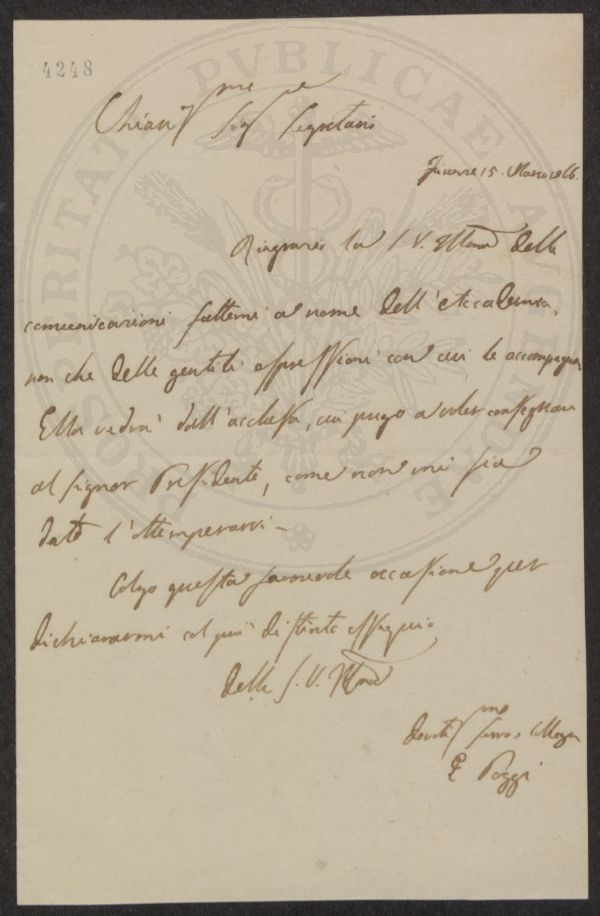 4248
PROSPERITATI PVBLICAE AVGENDAE
Chiar^mo Sig^re Segretario
Firenze 15. Marzo 1866.
Ringrazio la S. V. Ill^ma delle
comunicazioni fattemi a nome dell'Accademia,
non che delle gentili espressioni con cui le accompagna
Ella vedrà dall'acclusa, cui prego a voler consegnare
al signor Presidente, come non mi sia
dato l'ottemperarvi –
Colgo questa favorevole occasione per
dichiararmi col più distinto ossequio
della S. V. Ill^ma
devotis^mo servo e Collega
E Poggi